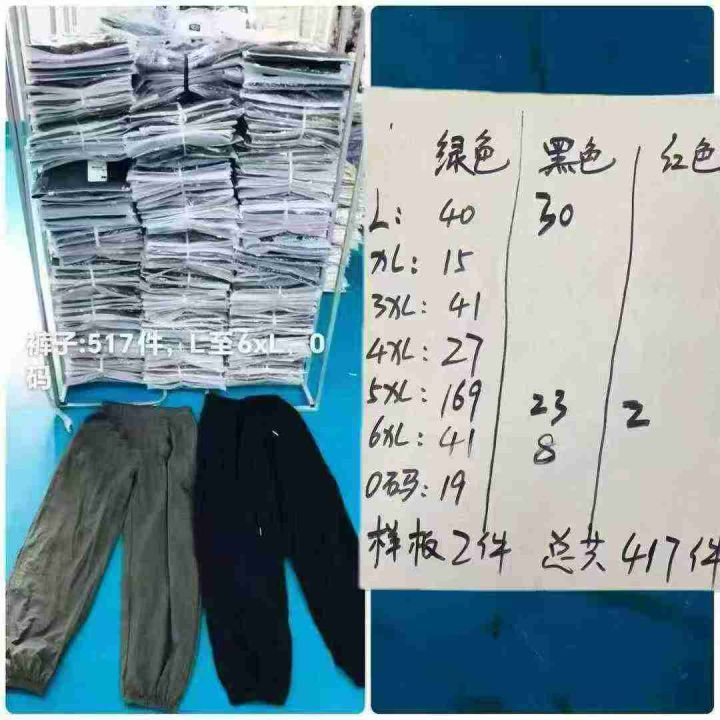 裤子:517件, L至6xL, 0
码
绿色 黑色 红色
L: 40 30
XL: 15
3XL: 41
4XL: 27
5XL: 169 23 2
6XL: 41 8
0码: 19
样板2件 总共417件